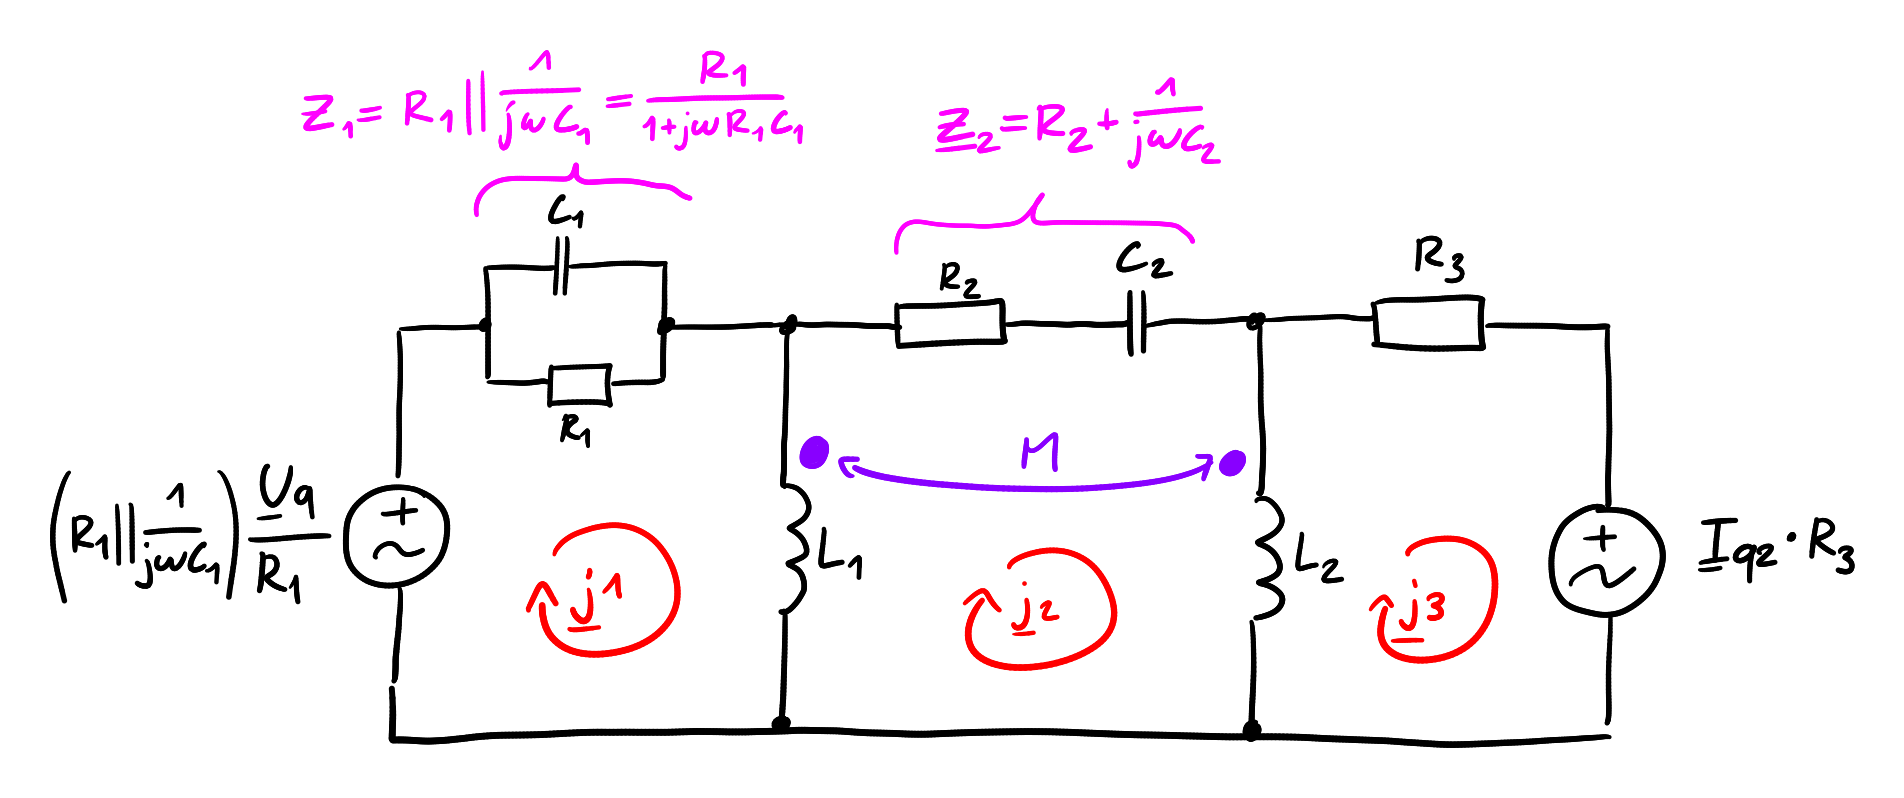 Z₁ = R₁ || 1/(jωC₁) = R₁/(1+jωR₁C₁)
Z₂ = R₂ + 1/(jωC₂)
C₁
R₂
C₂
R₃
R₁
M
(R₁ || 1/(jωC₁)) U_q/R₁
+
~
j1
L₁
j2
L₂
j3
+
~
I_q2 · R₃